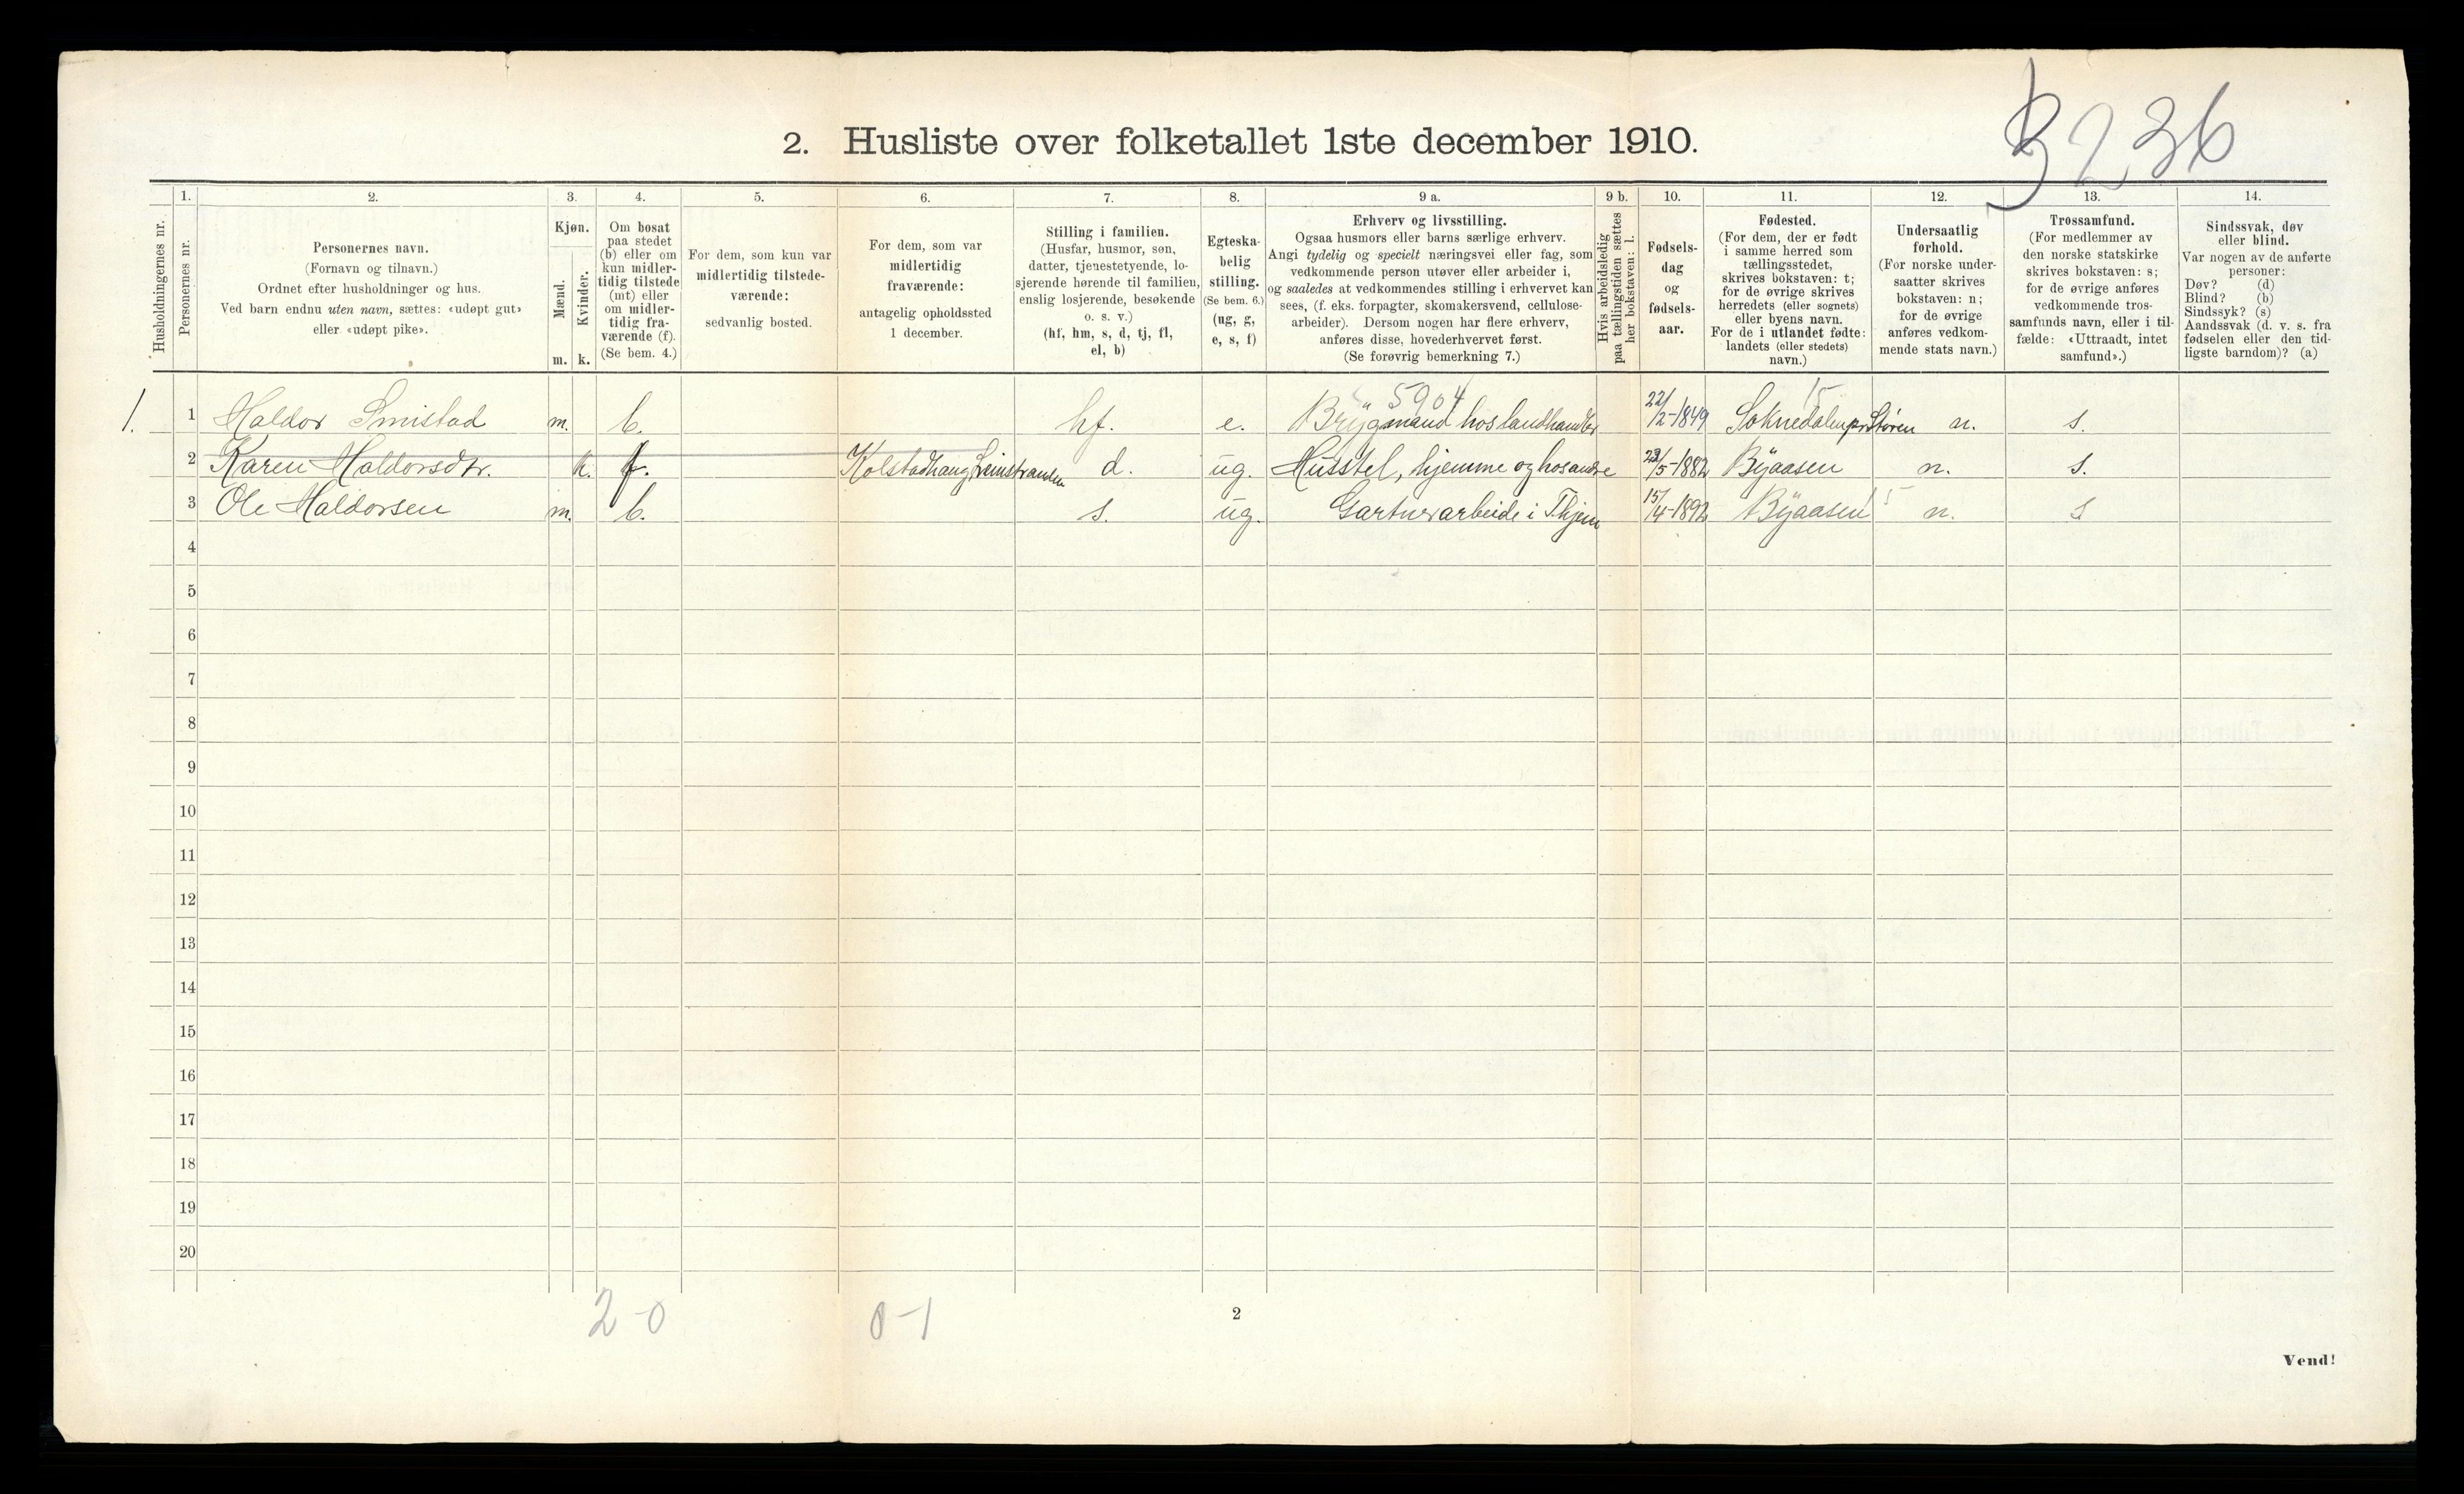 B 236
2. Husliste over folketallet 1ste december 1910.
Husholdningernes nr.
1.
Personernes nr.
2.
Personernes navn.
(Fornavn og tilnavn.)
Ordnet efter husholdninger og hus.
Ved barn endnu uten navn, sættes: «udøpt gut»
eller «udøpt pike».
3.
Kjøn.
Mænd.
Kvinder.
m. k.
4.
Om bosat
paa stedet
(b) eller om
kun midler-
tidig tilstede
(mt) eller
om midler-
tidig fra-
værende (f).
(Se bem. 4.)
5.
For dem, som kun var
midlertidig tilstede-
værende:
sedvanlig bosted.
6.
For dem, som var
midlertidig
fraværende:
antagelig opholdssted
1 december.
7.
Stilling i familien.
(Husfar, husmor, søn,
datter, tjenestetyende, lo-
sjerende hørende til familien,
enslig losjerende, besøkende
o. s. v.)
(hf, hm, s, d, tj, fl,
el, b)
8.
Egteska-
belig
stilling.
(Se bem. 6.)
(ug, g,
e, s, f)
9 a.
Erhverv og livsstilling.
Ogsaa husmors eller barns særlige erhverv.
Angi tydelig og specielt næringsvei eller fag, som
vedkommende person utøver eller arbeider i,
og saaledes at vedkommendes stilling i erhvervet kan
sees, (f. eks. forpagter, skomakersvend, cellulose-
arbeider). Dersom nogen har flere erhverv,
anføres disse, hovederhvervet først.
(Se forøvrig bemerkning 7.)
9 b.
Hvis arbeidsledig
paa tællingstiden sættes
her bokstaven: l.
10.
Fødsels-
dag
og
fødsels-
aar.
11.
Fødested.
(For dem, der er født
i samme herred som
tællingsstedet,
skrives bokstaven: t;
for de øvrige skrives
herredets (eller sognets)
eller byens navn.
For de i utlandet fødte:
landets (eller stedets)
navn.)
12.
Undersaatlig
forhold.
(For norske under-
saatter skrives
bokstaven: n;
for de øvrige
anføres vedkom-
mende stats navn.)
13.
Trossamfund.
(For medlemmer av
den norske statskirke
skrives bokstaven: s;
for de øvrige anføres
vedkommende tros-
samfunds navn, eller i til-
fælde: «Uttraadt, intet
samfund».)
14.
Sindssvak, døv
eller blind.
Var nogen av de anførte
personer:
Døv? (d)
Blind? (b)
Sindssyk? (s)
Aandssvak (d. v. s. fra
fødselen eller den tid-
ligste barndom)? (a)
5904 15
1. 1 Haldor Smistad m. b. hf. e. Brygmand hos landhandler 22/2-1849 Soknedalen pr Støren n. s.
2 Karen Haldorsdtr. k. f. Kolstadhaug, Leinstranden d. ug. Husstel, hjemme og hos andre 23/5-1882 Byaasen n. s.
3 Ole Haldorsen m. b. s. ug. Gartnerarbeide i Thjem 15/4-1892 Byaasen 15 n. s
4
5
6
7
8
9
10
11
12
13
14
15
16
17
18
19
20
2-0 0-1 2
Vend!